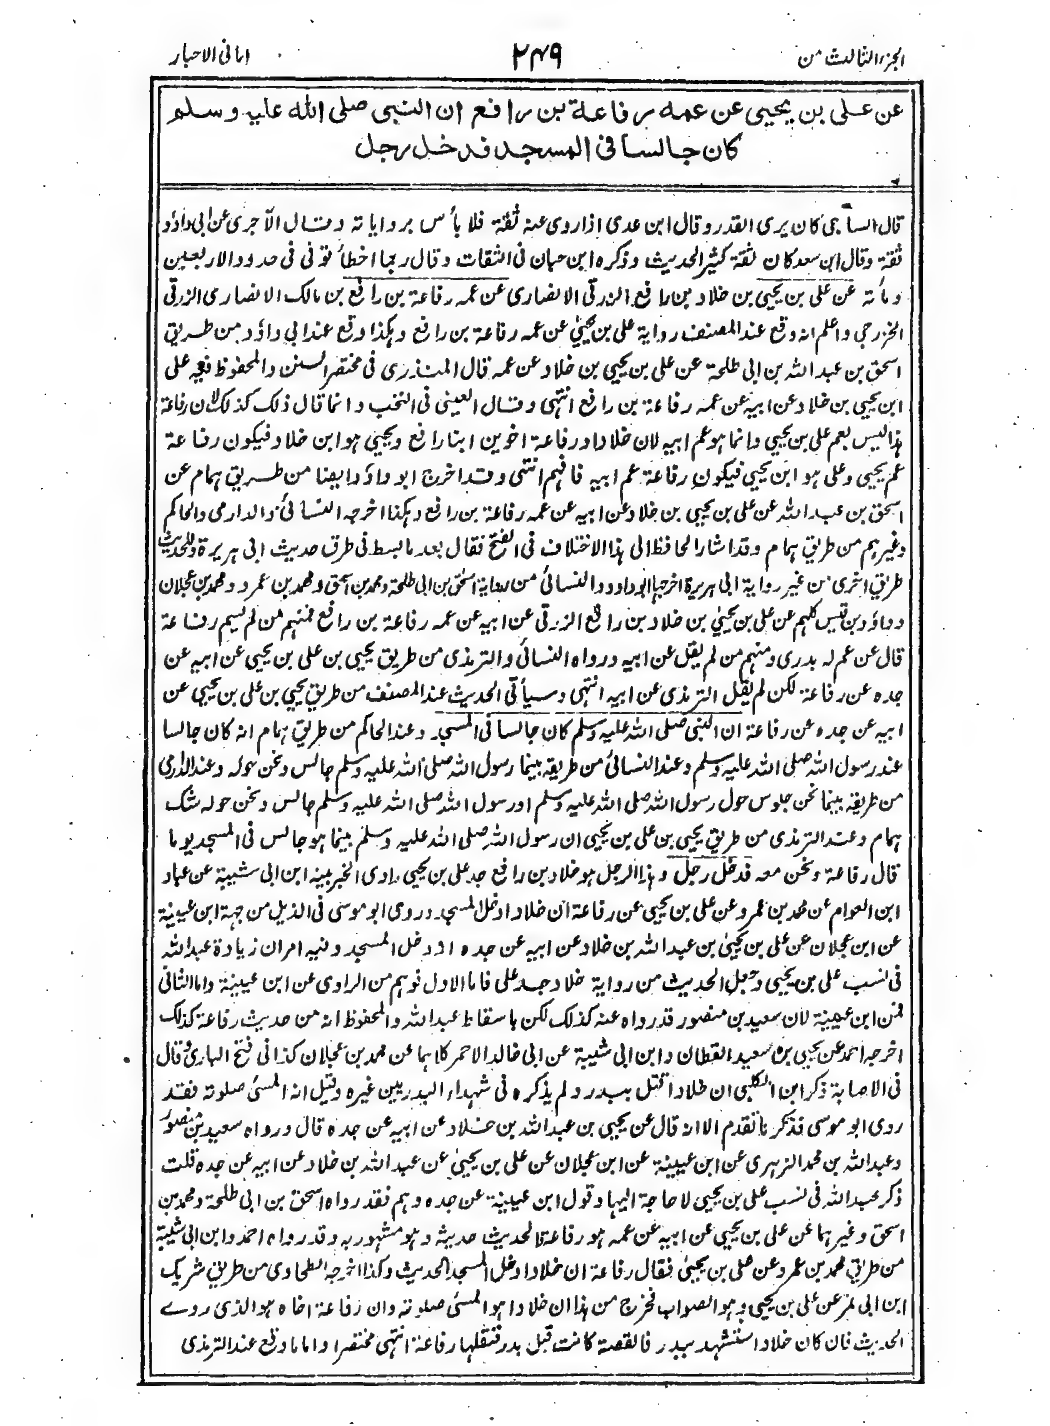 الجزء الثالث من
٢٤٩
امانی الاحبار
عن علی بن یحیی عن عمه رفاعة بن رافع ان النبی صلی الله علیه وسلم
کان جالسا فی المسجد فدخل رجل
قال الساجی کان یری القدر وقال ابن عدی اذا روی عنه ثقة فلا بأس بروایاته وقال الآجری عن ابی داؤد
ثقة وقال ابن سعد کان ثقة کثیر الحدیث وذکره ابن حبان فی الثقات وقال ربما اخطأ توفی فی حدود الاربعین
ومأة عن علی بن یحیی بن خلاد بن رافع الزرقی الانصاری عن عمه رفاعة بن رافع بن مالک الانصاری الزرقی
الخزرجی واعلم انه وقع عند المصنف روایة علی بن یحیی عن عمه رفاعة بن رافع وهکذا وقع عند ابی داؤد من طریق
اسحق بن عبد الله بن ابی طلحة عن علی بن یحیی بن خلاد عن عمه قال المنذری فی مختصر السنن والمحفوظ فیه علی
ابن یحیی بن خلاد عن ابیه عن عمه رفاعة بن رافع انتهی وقال العینی فی النخب وانما قال ذلک کذلک لان رفاعة
هذا لیس بعم علی بن یحیی وانما هو عم ابیه لان خلادا ورفاعة اخوین ابنا رافع ویحیی هو ابن خلاد فیکون رفاعة
عم یحیی وعلی هو ابن یحیی فیکون رفاعة عم ابیه فافهم انتهی وقد اخرج ابو داؤد ایضا من طریق همام عن
اسحق بن عبد الله عن علی بن یحیی بن خلاد عن ابیه عن عمه رفاعة بن رافع وهکذا اخرجه النسائی والدارمی والحاکم
وغیرهم من طریق همام وقد اشار الحافظ الی هذا الاختلاف فی الفتح فقال بعد ما بسط فی طرق حدیث ابی هریرة وللحدیث
طریق اخری من غیر روایة ابی هریرة اخرجها ابو داود والنسائی من روایة اسحق بن ابی طلحة ومحمد بن اسحق ومحمد بن عمرو ومحمد بن عجلان
وداؤد بن قیس کلهم عن علی بن یحیی بن خلاد بن رافع الزرقی عن ابیه عن عمه رفاعة بن رافع فمنهم من لم یسم رفاعة
قال عن عم له بدری ومنهم من لم یقل عن ابیه ورواه النسائی والترمذی من طریق یحیی بن علی بن یحیی عن ابیه عن
جده عن رفاعة لکن لم یقل الترمذی عن ابیه انتهی وسیأتی الحدیث عند المصنف من طریق یحیی بن علی بن یحیی عن
ابیه عن جده عن رفاعة ان النبی صلی الله علیه وسلم کان جالسا فی المسجد وعند الحاکم من طریق همام انه کان جالسا
عند رسول الله صلی الله علیه وسلم وعند النسائی من طریقه بینما رسول الله صلی الله علیه وسلم جالس ونحن حوله وعند الدارمی
من طریقه بینما نحن جلوس حول رسول الله صلی الله علیه وسلم او رسول الله صلی الله علیه وسلم جالس ونحن حوله شک
همام وعند الترمذی من طریق یحیی بن علی بن یحیی ان رسول الله صلی الله علیه وسلم بینما هو جالس فی المسجد یوما
قال رفاعة ونحن معه فدخل رجل وهذا الرجل هو خلاد بن رافع جد علی بن یحیی راوی الخبر بینه ابن ابی شیبة عن عباد
ابن العوام عن محمد بن عمرو عن علی بن یحیی عن رفاعة ان خلادا دخل المسجد وروی ابو موسی فی الذیل من جهة ابن عیینة
عن ابن عجلان عن علی بن یحیی بن عبد الله بن خلاد عن ابیه عن جده انه دخل المسجد وفیه امران زیادة عبد الله
فی نسب علی بن یحیی وجعل الحدیث من روایة خلاد جد علی فاما الاول فوهم من الراوی عن ابن عیینة واما الثانی
فمن ابن عیینة لان سعید بن منصور قد رواه عنه کذلک لکن باسقاط عبد الله والمحفوظ انه من حدیث رفاعة کذلک
اخرجه احمد عن یحیی بن سعید القطان وابن ابی شیبة عن ابی خالد الاحمر کلاهما عن محمد بن عجلان کذا فی فتح الباری وقال
فی الاصابة ذکر ابن الکلبی ان خلادا قتل ببدر ولم یذکره فی شهداء البدریین غیره وقیل انه المسئ صلوته فقد
روی ابو موسی فذکر ما تقدم الا انه قال عن یحیی بن عبد الله بن خلاد عن ابیه عن جده قال ورواه سعید بن منصور
وعبد الله بن محمد الزهری عن ابن عیینة عن ابن عجلان عن علی بن یحیی عن عبد الله بن خلاد عن ابیه عن جده قلت
ذکر عبد الله فی نسب علی بن یحیی لا حاجة الیها وقول ابن عیینة عن جده وهم فقد رواه اسحق بن ابی طلحة ومحمد بن
اسحق وغیرهما عن علی بن یحیی عن ابیه عن عمه هو رفاعة الحدیث حدیثه وهو مشهور به وقد رواه احمد وابن ابی شیبة
من طریق محمد بن عمرو عن علی بن یحیی فقال رفاعة ان خلادا دخل المسجد الحدیث وکذا اخرجه الطحاوی من طریق شریک
ابن ابی نمر عن علی بن یحیی وهو الصواب فخرج من هذا ان خلادا هو المسئ صلوته وان رفاعة اخاه هو الذی روے
الحدیث فان کان خلاد استشهد ببدر فالقصة کانت قبل بدر فنقلها رفاعة انتهی مختصرا واما ما وقع عند الترمذی